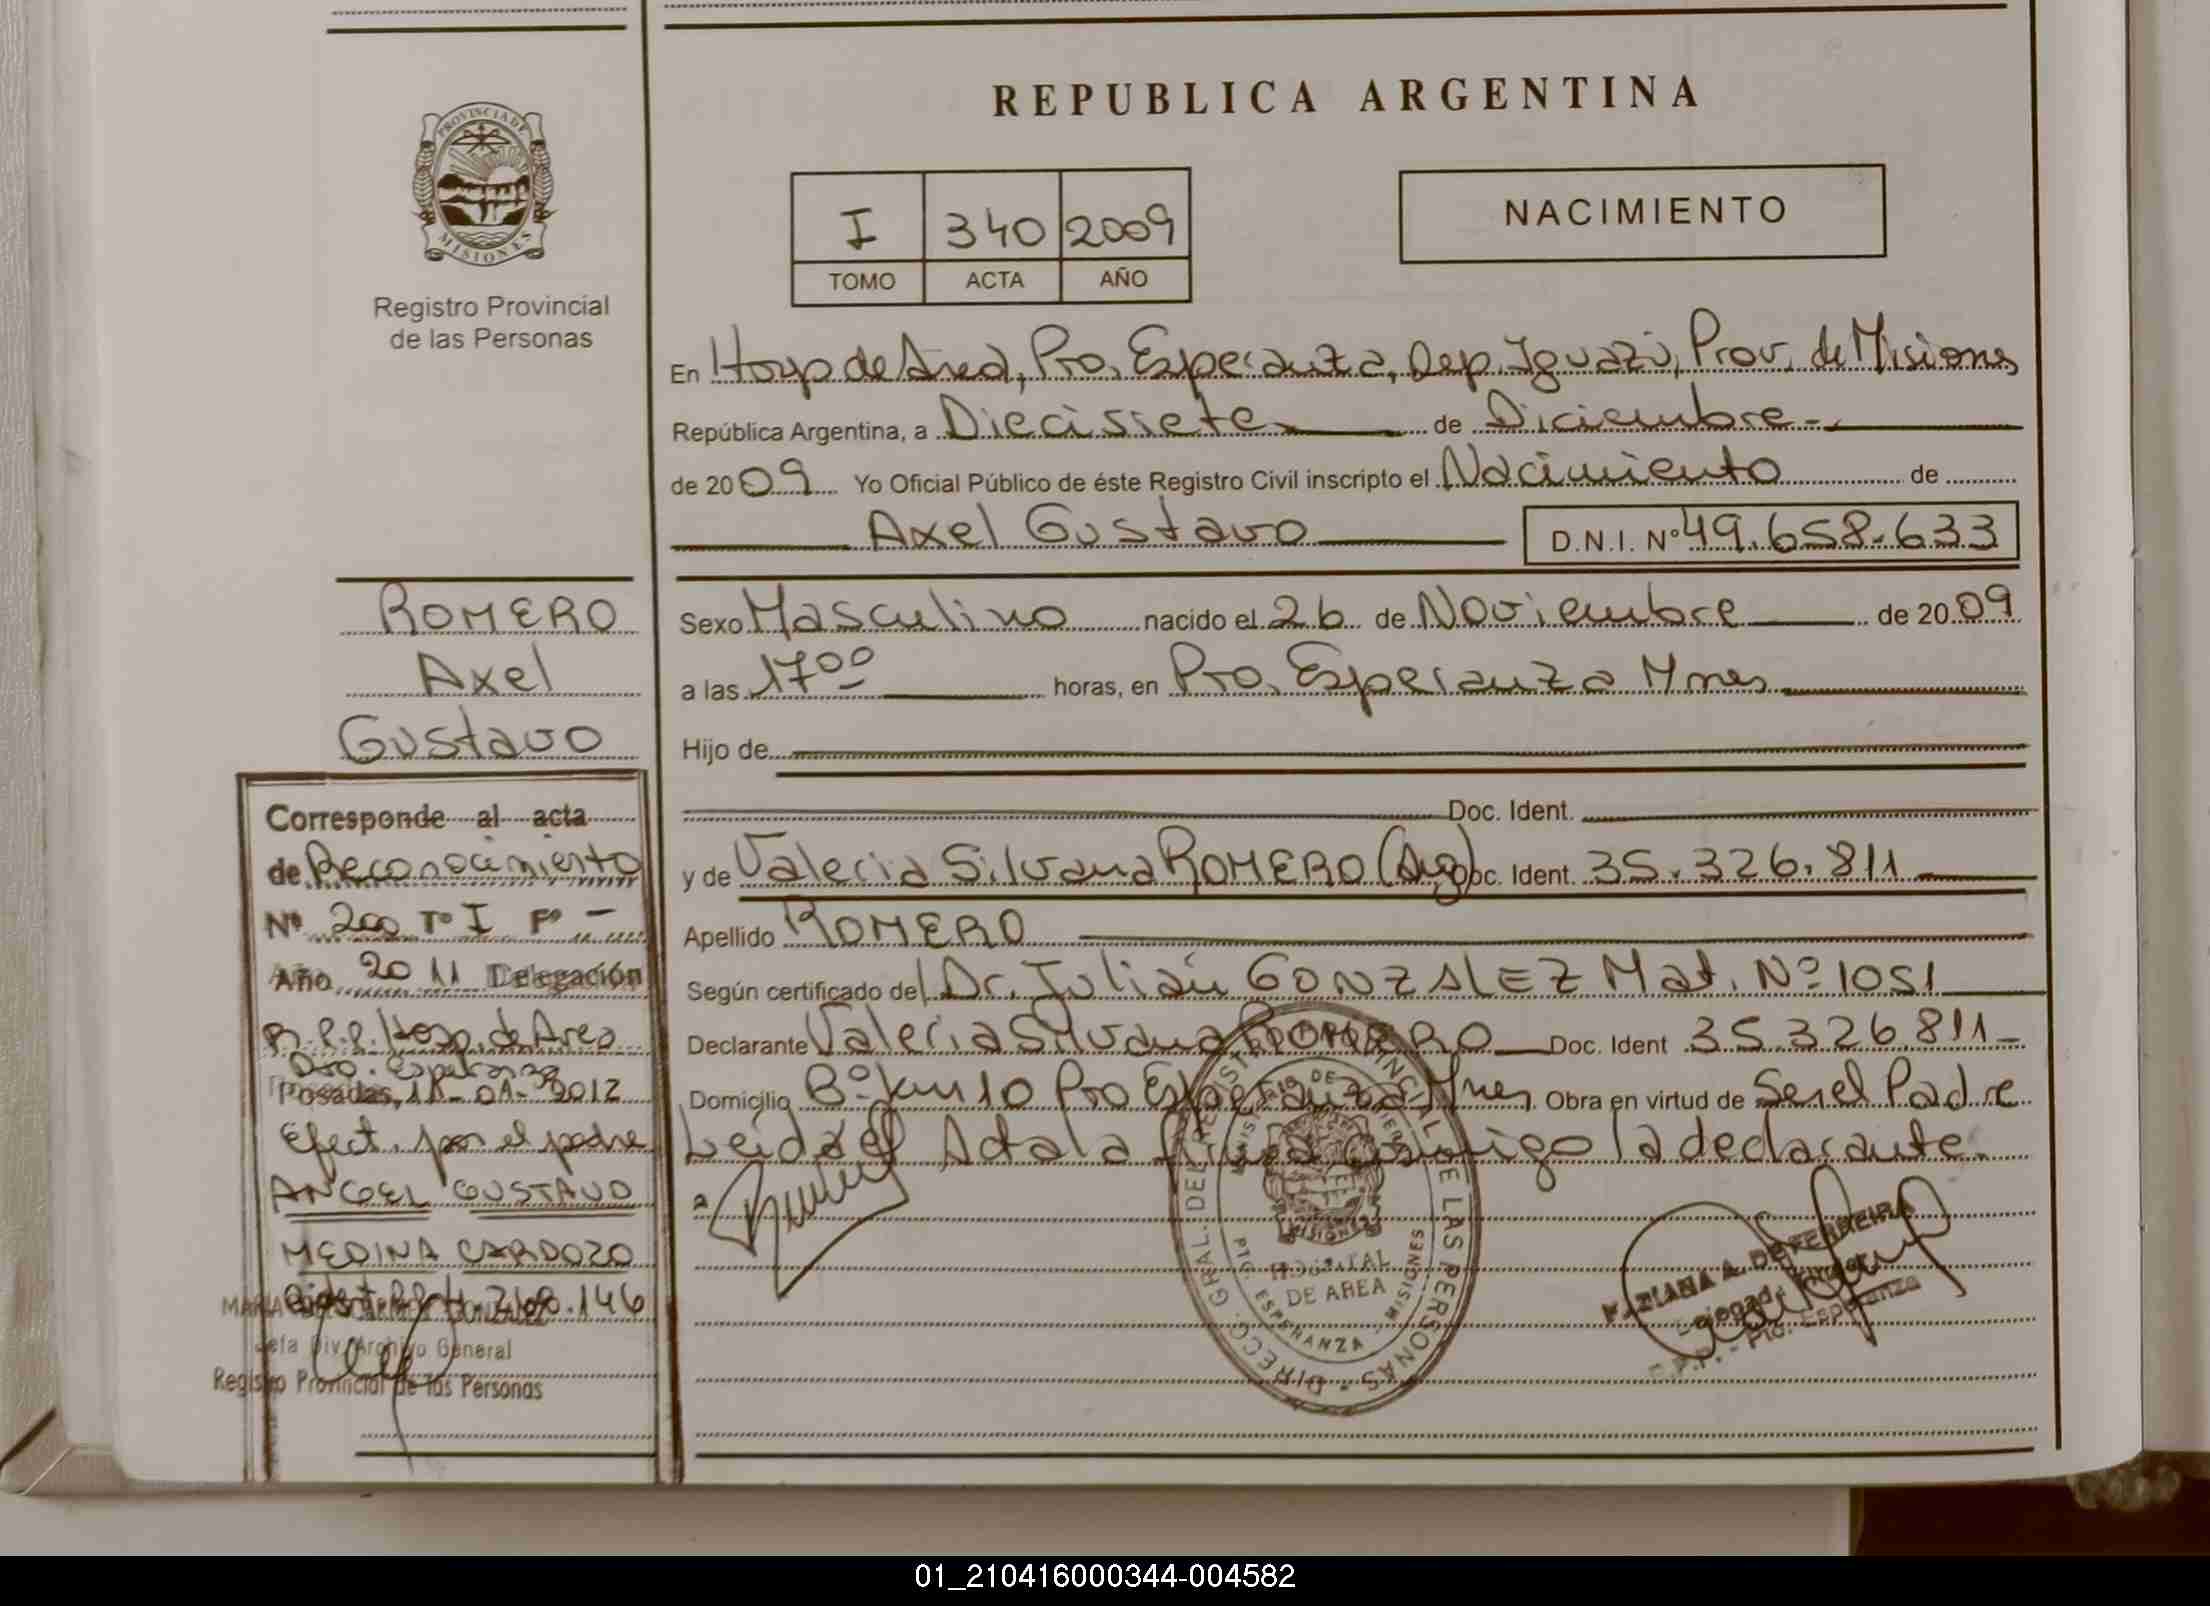 REPUBLICA ARGENTINA
PROVINCIA DE
MISIONES
Registro Provincial
de las Personas
I 340 2009
TOMO ACTA AÑO
NACIMIENTO
En Hosp de Area, Pto. Esperanza, Dep. Iguazú, Prov. de Misiones
República Argentina, a Diecisiete de Diciembre
de 2009 Yo Oficial Público de éste Registro Civil inscripto el Nacimiento de
Axel Gustavo D.N.I. Nº 49.658.633
ROMERO
Axel
Gustavo
Sexo Masculino nacido el 26 de Noviembre de 2009
a las 17⁰⁰ horas, en Pto. Esperanza Mnes
Hijo de
Doc. Ident.
y de Valeria Silvana ROMERO (Arg) Doc. Ident. 35.326.811
Apellido ROMERO
Según certificado del Dr. Julián GONZALEZ Mat. Nº 1051
Declarante Valeria Silvana ROMERO Doc. Ident 35.326.811
Domicilio Bº km 10 Pto Esperanza Mnes. Obra en virtud de Ser el Padre
Leída el Acta la firma conmigo la declarante.
Corresponde al acta
de Reconocimiento
Nº 200 Tº I Fº -
Año 2011 Delegación
R.P.P. Hosp. de Area
Pto. Esperanza
Posadas, 2012
Efect. por el padre
ANGEL GUSTAVO
MEDINA CARDOZO
146
MARIA
Jefa Div. Archivo General
Registro Provincial de las Personas
DIRECC. GRAL. DEL REGISTRO PROVINCIAL DE LAS PERSONAS
MISIONES
HOSPITAL
DE AREA
PTO. ESPERANZA - MISIONES
R.P.P. - Pto. Esperanza
01_210416000344-004582